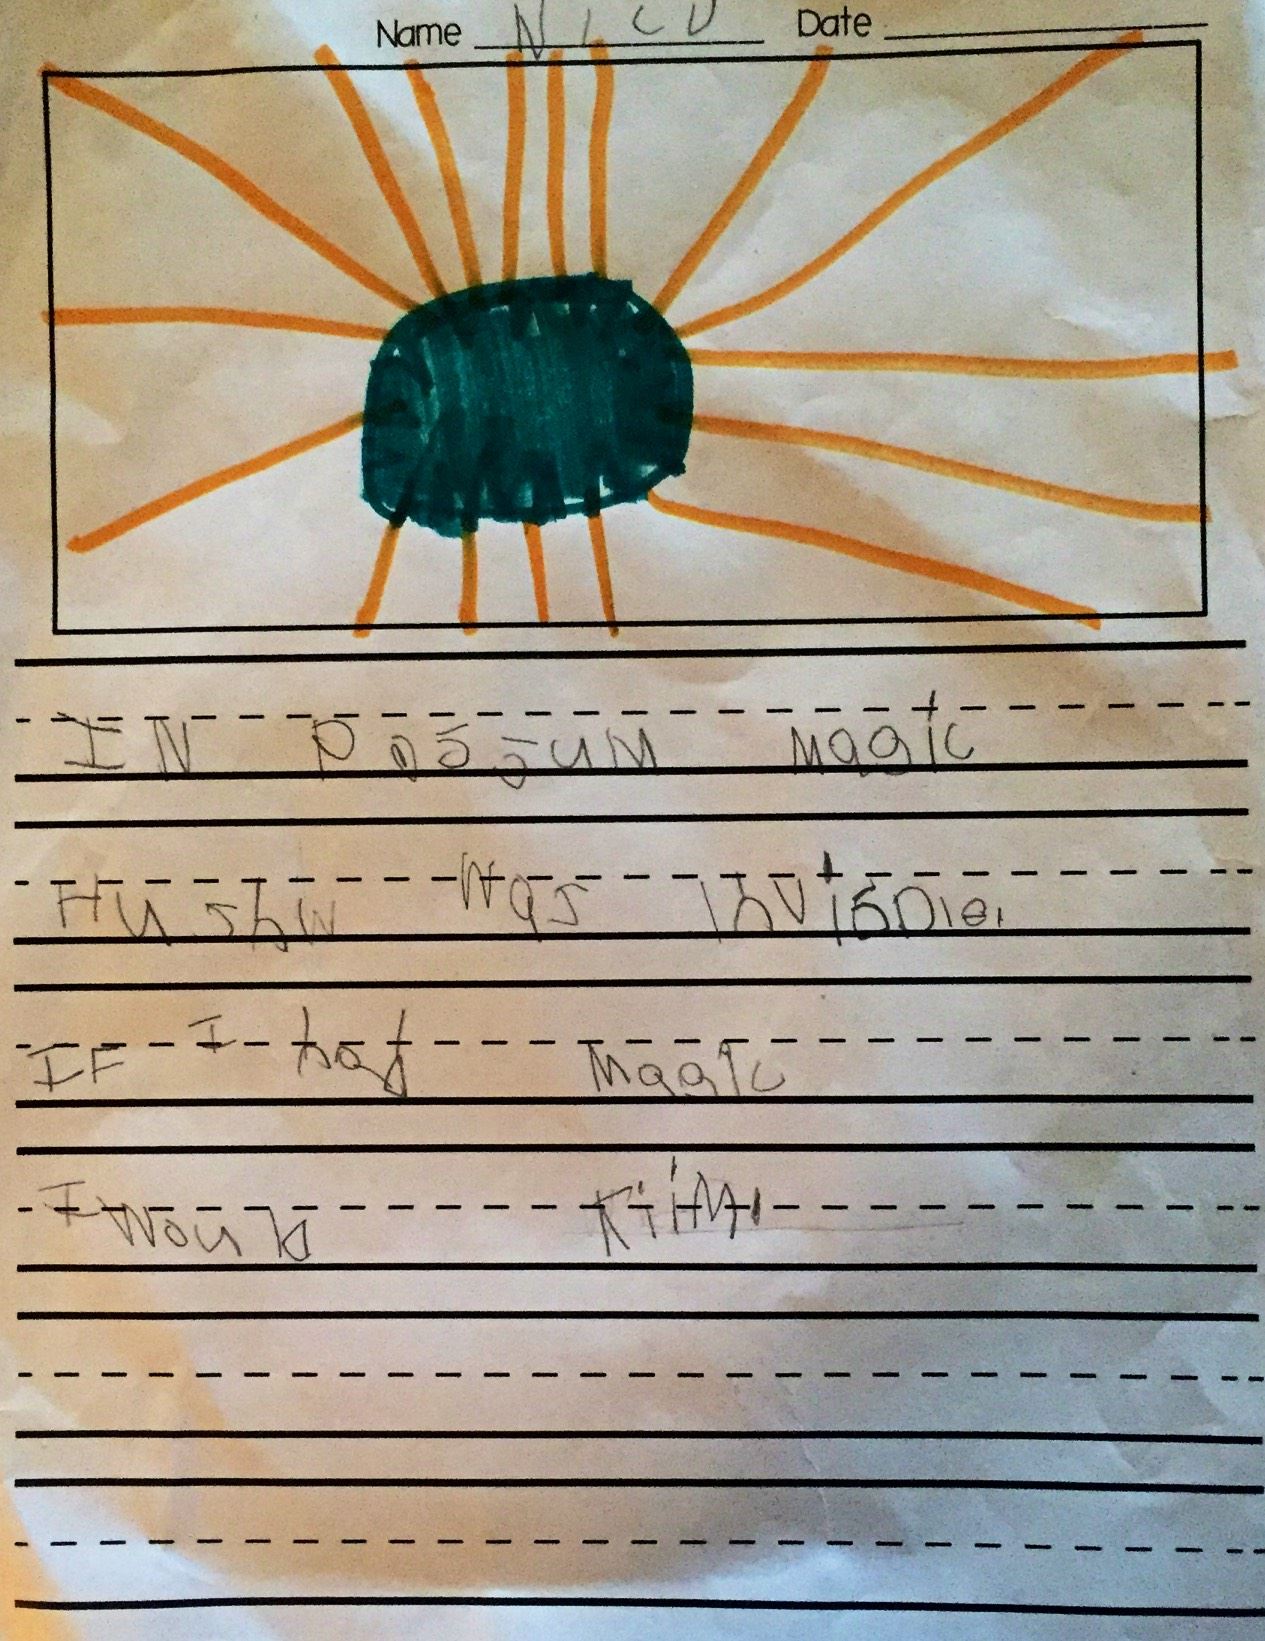 Name Nico Date
IN Possum Magic
Hushw was invisble.
IF I had Magic
I Would